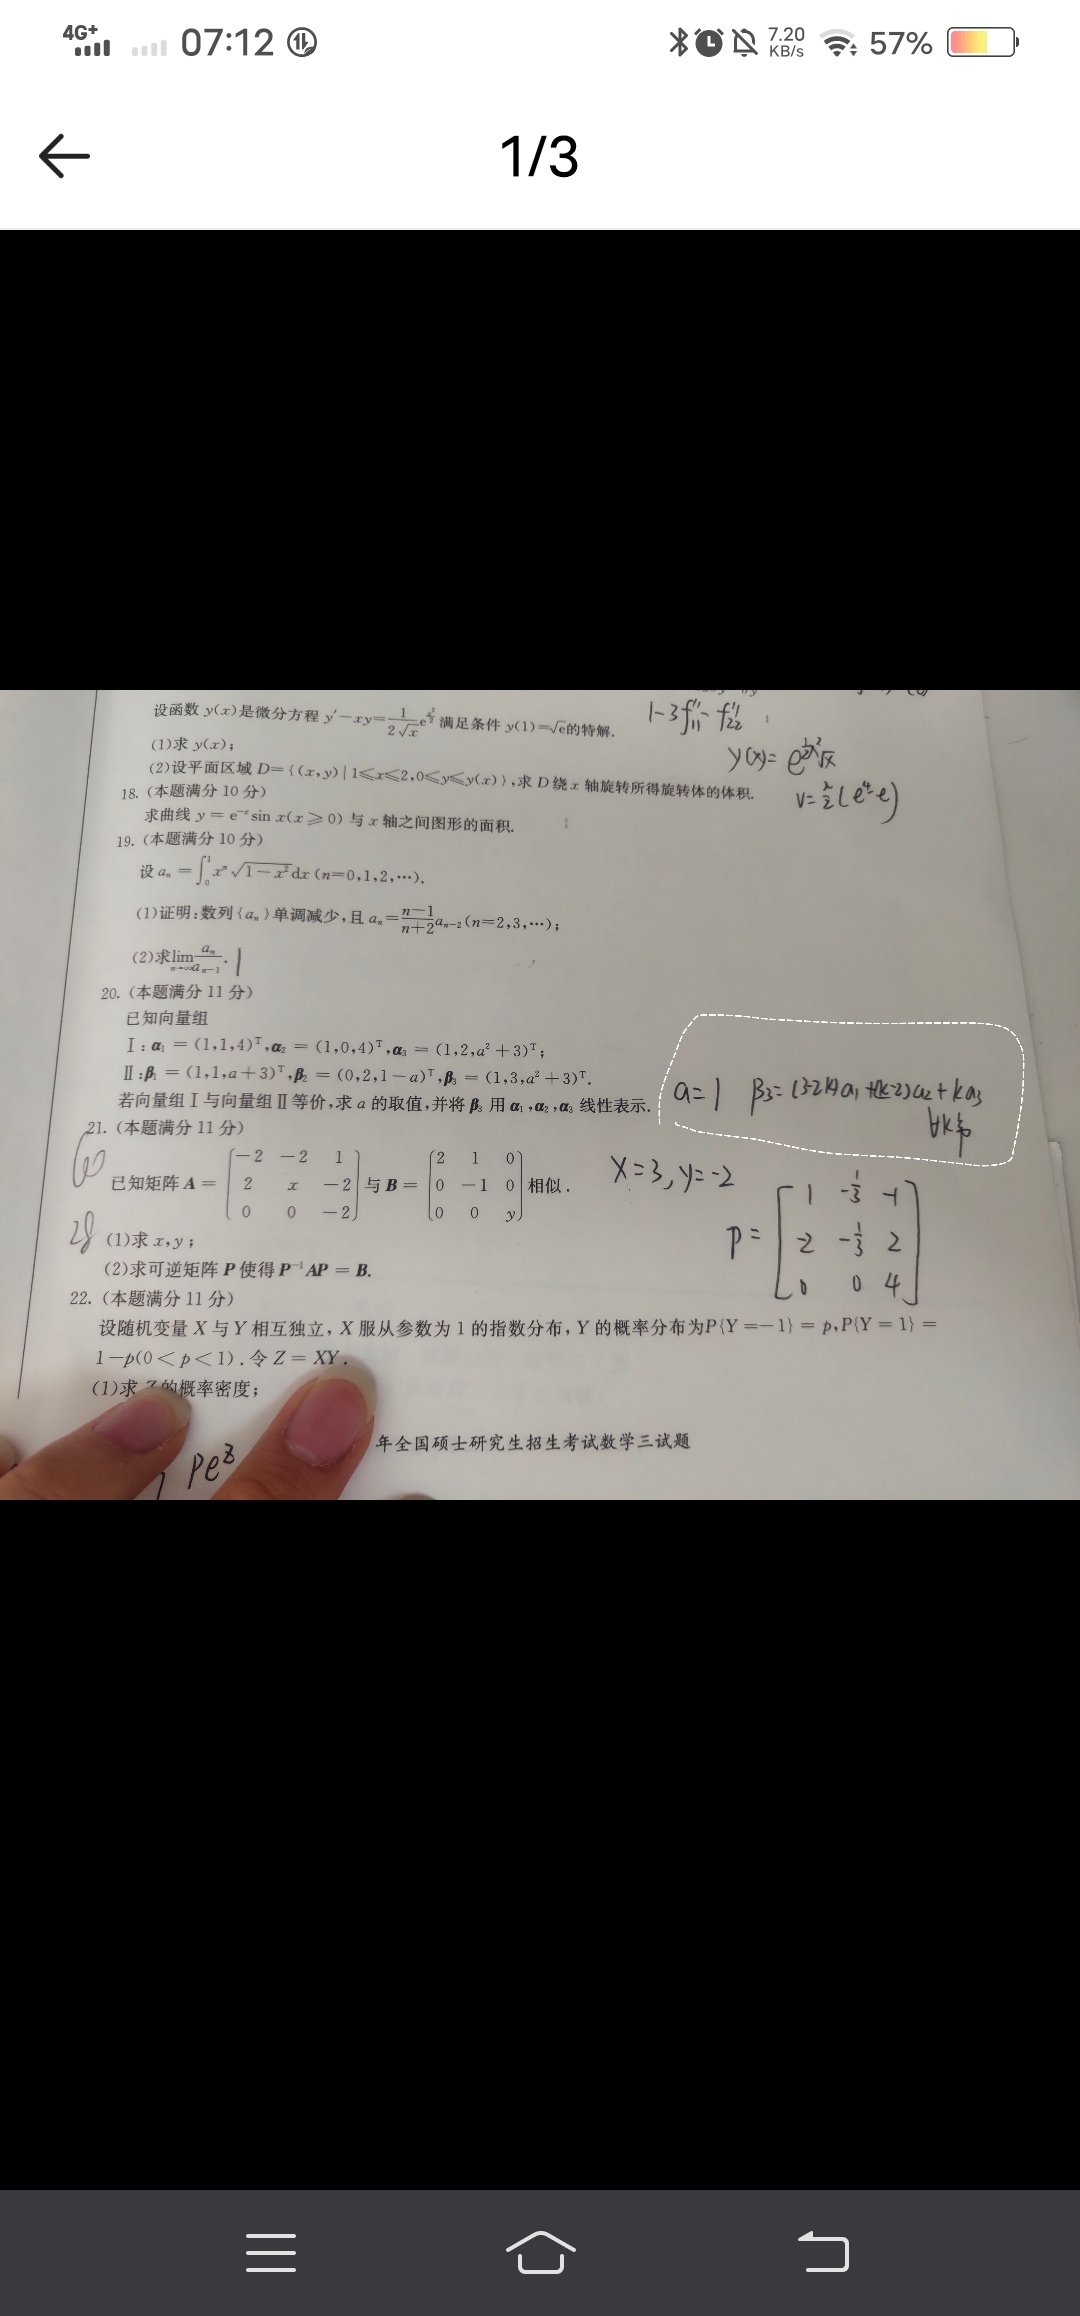 4G+ 07:12 7.20 KB/s 57%
1/3
设函数 y(x)是微分方程 y′-xy=\frac{1}{2\sqrt{x}}e^{\frac{x^2}{2}} 满足条件 y(1)=√e的特解.
1-3f″₁₁-f″₂₂
(1)求 y(x);
y(x)=e^{\frac{1}{2}x^2}√x
(2)设平面区域 D={(x,y)|1≤x≤2,0≤y≤y(x)},求 D 绕 x 轴旋转所得旋转体的体积.
V=\frac{π}{2}(e⁴-e)
18.(本题满分 10 分)
求曲线 y = e⁻ˣsin x(x≥0) 与 x 轴之间图形的面积.
19.(本题满分 10 分)
设 aₙ = ∫₀¹ xⁿ√(1-x²)dx (n=0,1,2,…).
(1)证明:数列{aₙ}单调减少,且 aₙ=\frac{n-1}{n+2}aₙ₋₂(n=2,3,…);
(2)求\lim_{n→∞}\frac{aₙ}{aₙ₋₁}. 1
20.(本题满分 11 分)
已知向量组
Ⅰ:α₁ = (1,1,4)ᵀ,α₂ = (1,0,4)ᵀ,α₃ = (1,2,a²+3)ᵀ;
Ⅱ:β₁ = (1,1,a+3)ᵀ,β₂ = (0,2,1-a)ᵀ,β₃ = (1,3,a²+3)ᵀ.
若向量组Ⅰ与向量组Ⅱ等价,求 a 的取值,并将 β₃ 用 α₁,α₂,α₃ 线性表示.
a=1 β₃=(3-2k)α₁+(k-2)α₂+kα₃
21.(本题满分 11 分)
已知矩阵 A = [-2 -2 1; 2 x -2; 0 0 -2] 与 B = [2 1 0; 0 -1 0; 0 0 y] 相似.
x=3,y=-2
(1)求 x,y;
P= [1 -\frac{1}{3} -1; -2 -\frac{1}{3} 2; 0 0 4]
(2)求可逆矩阵 P 使得 P⁻¹AP = B.
22.(本题满分 11 分)
设随机变量 X 与 Y 相互独立,X 服从参数为 1 的指数分布,Y 的概率分布为P{Y=-1} = p,P{Y = 1} =
1-p(0<p<1).令 Z = XY.
(1)求 Z的概率密度;
年全国硕士研究生招生考试数学三试题
pe^z